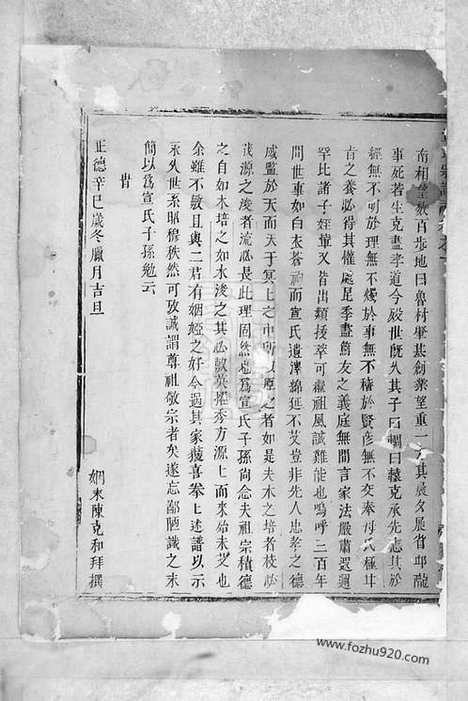 南相數百步地曰魯村肇基創業望重一其晨夕展省邱隴
事死若生克盡孝道今歿世旣久其子曰綱曰轅克承先志其於
經無不明於理無不燭於事無不積於賢彥無不交奉母氏極甘
旨之養必得其懽處昆季盡友之義庭無間言家法嚴肅遐邇
罕比諸子姪輩又皆出類拔萃可繼祖風誠難能也嗚呼二百年
間世事如白衣蒼狗而宣氏遺澤綿延不艾豈非先人忠孝之德
咸監於天而天於冥上之中所以應之者如是夫木之培者枝必
茂源之浚者流必長此理固然也爲宣氏子孫尚念夫祖宗積德
之自如木培之如水浚之其必敏英擢秀方源上而來始未艾也
余雖不敏且與二君有姻婭之好今過其家獲喜拳上述譜以示
余久世系昭穆秩然可攷誠謂尊祖敬宗者矣遂忘鄙陋識之末
簡以爲宣氏子孫勉云
旹
正德辛巳歲冬臘月吉旦
姻末陳克和拜撰
www.fozhu920.com